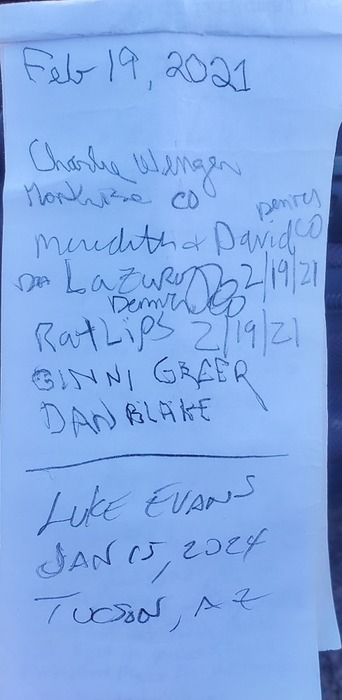 Feb 19, 2021
Charlie Wenger
CO
Denver
Meredith & David CO
LaZuRo 2/19/21
Denver CO
RatLips 2/19/21
GINNI GREER
DAN BLAKE
LUKE EVANS
JAN 15, 2024
TUCSON, AZ